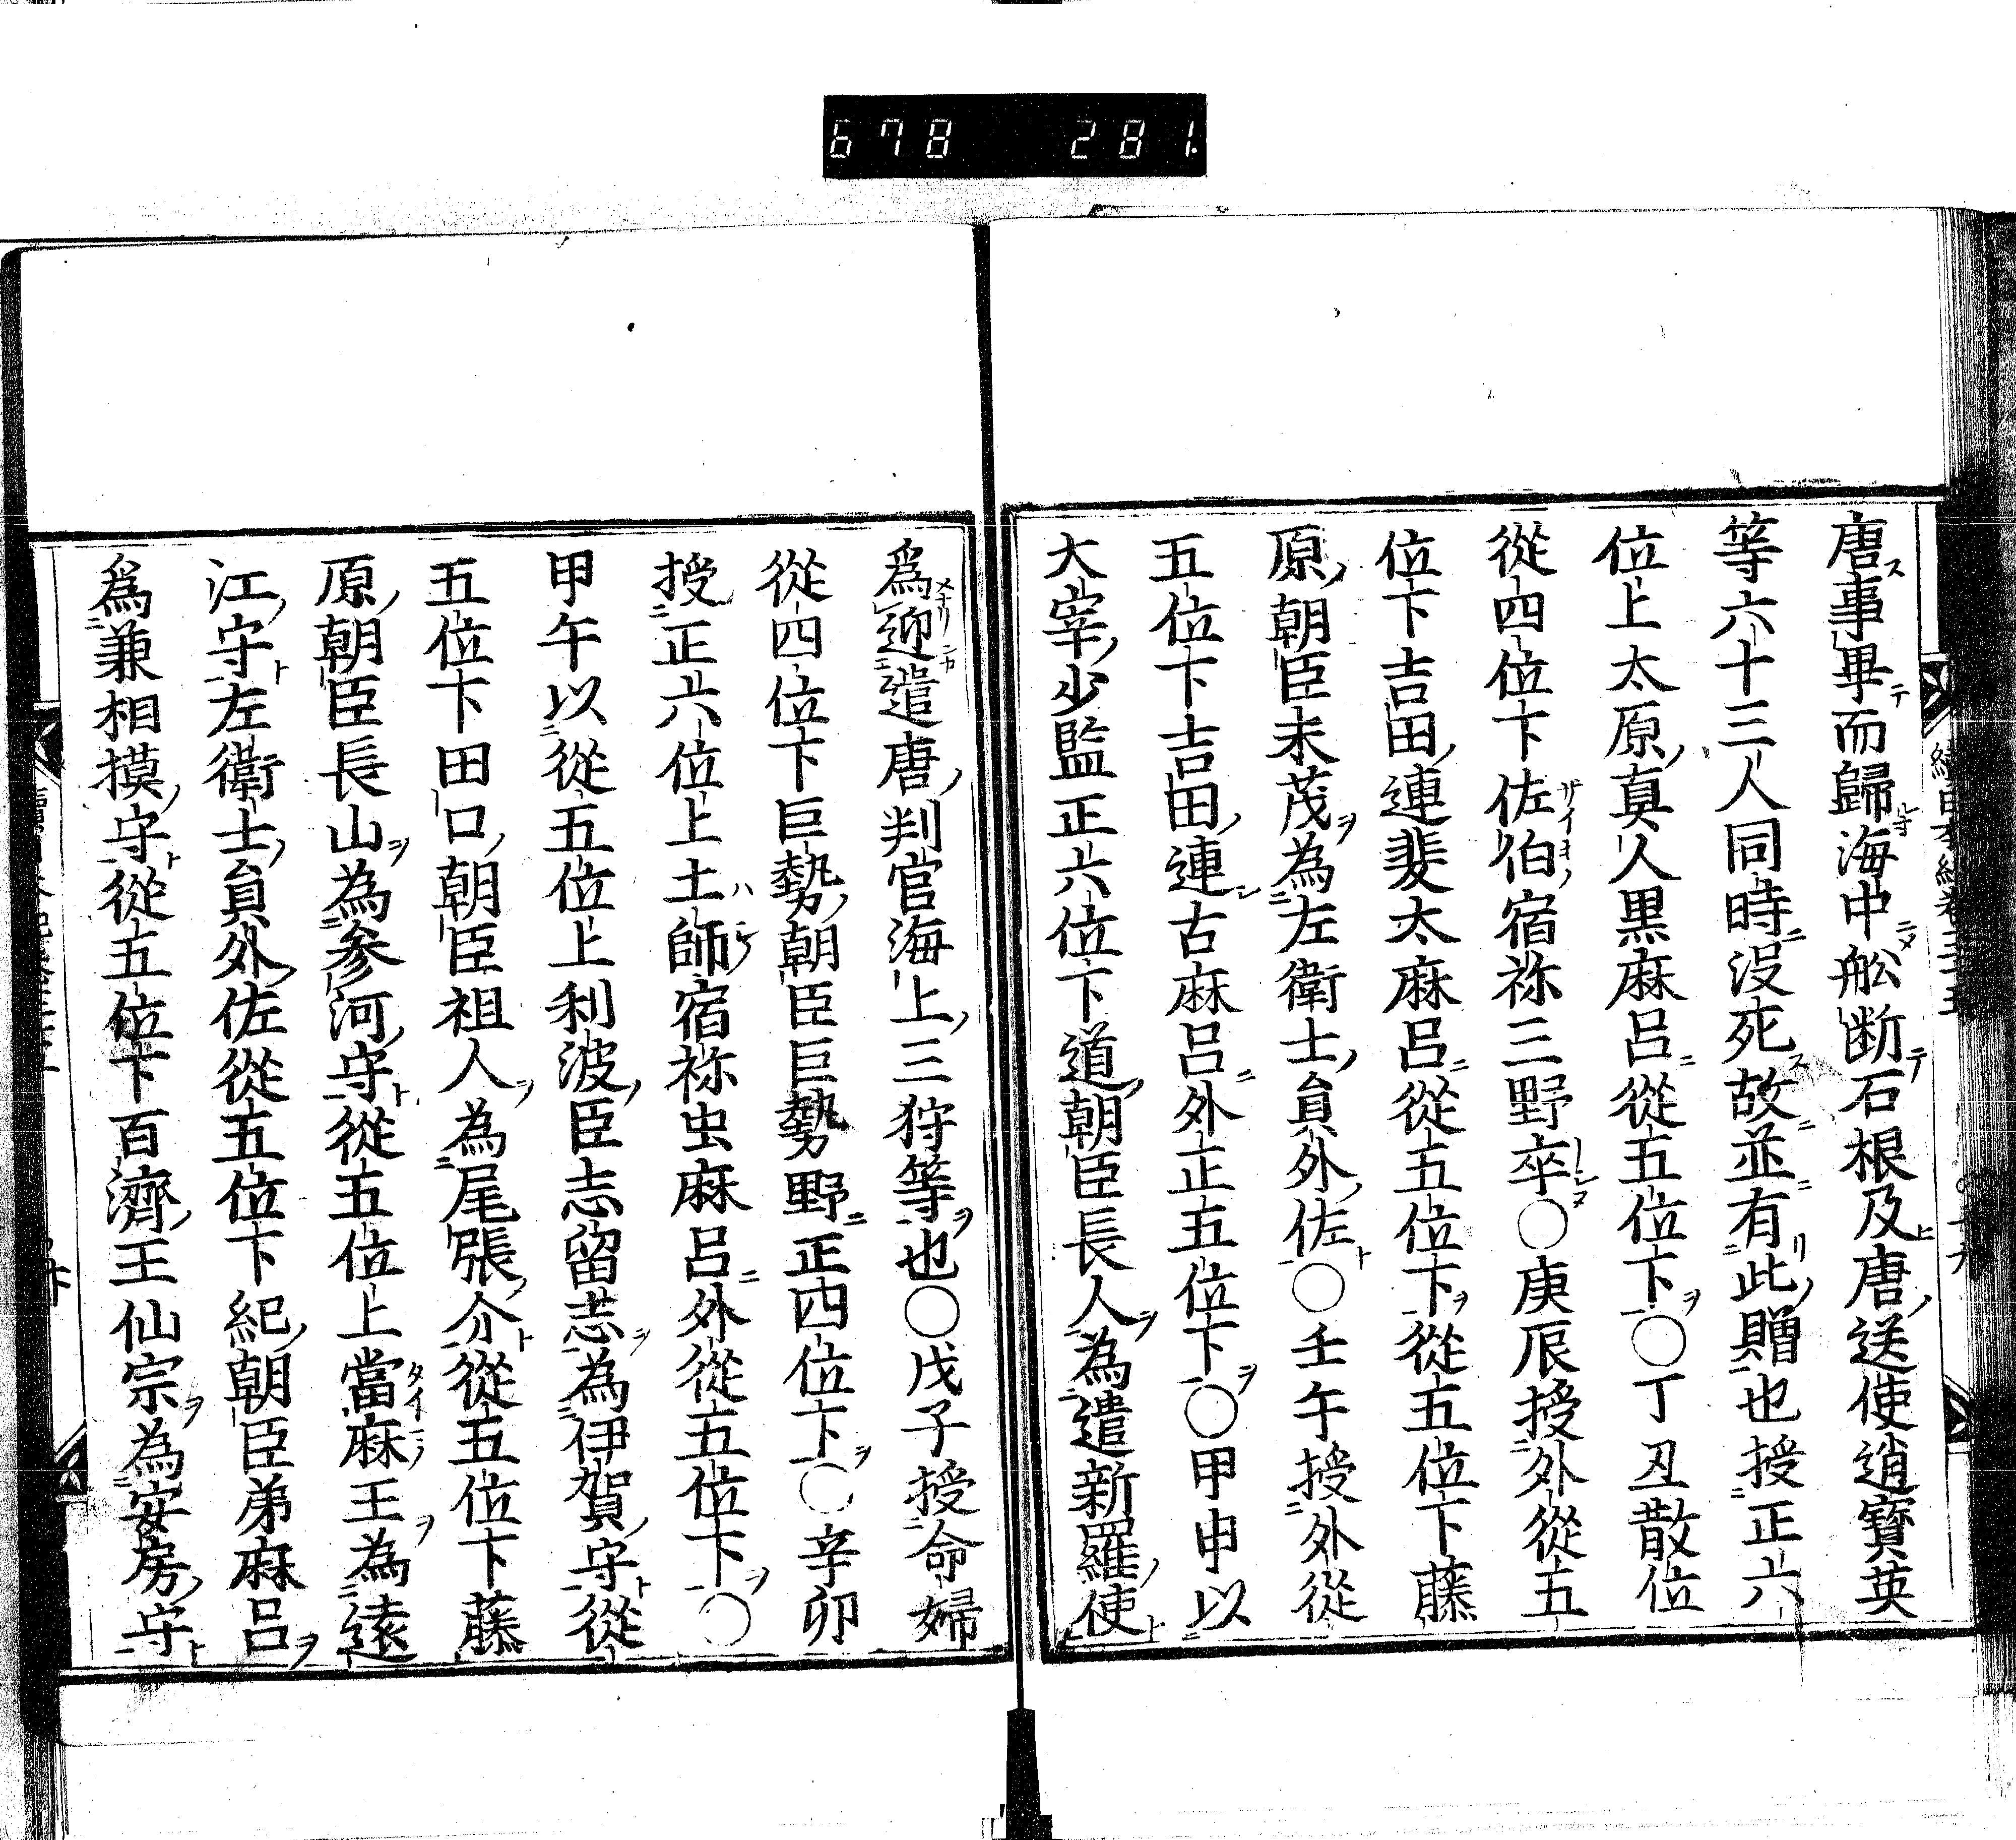 678 281
唐事畢而歸海中舩断石根及唐送使趙寳英
等六十三人同時没死故並有此贈也授正六
位上太原真人黒麻呂從五位下○丁丑散位
從四位下佐伯宿祢三野卒○庚辰授外從五
位下吉田連斐太麻呂從五位下從五位下藤
原朝臣末茂為左衛士員外佐○壬午授外從
五位下吉田連古麻呂外正五位下○甲申以
大宰少監正六位下道朝臣長人為遣新羅使
爲迎遣唐判官海上三狩等也○戊子授命婦
從四位下巨勢朝臣巨勢野正四位下○辛卯
授正六位上土師宿祢虫麻呂外從五位下○
甲午以從五位上利波臣志留志為伊賀守從
五位下田口朝臣祖人為尾張介從五位下藤
原朝臣長山為参河守從五位上當麻王為遠
江守左衛士員外佐從五位下紀朝臣弟麻呂
爲兼相摸守從五位下百濟王仙宗為安房守